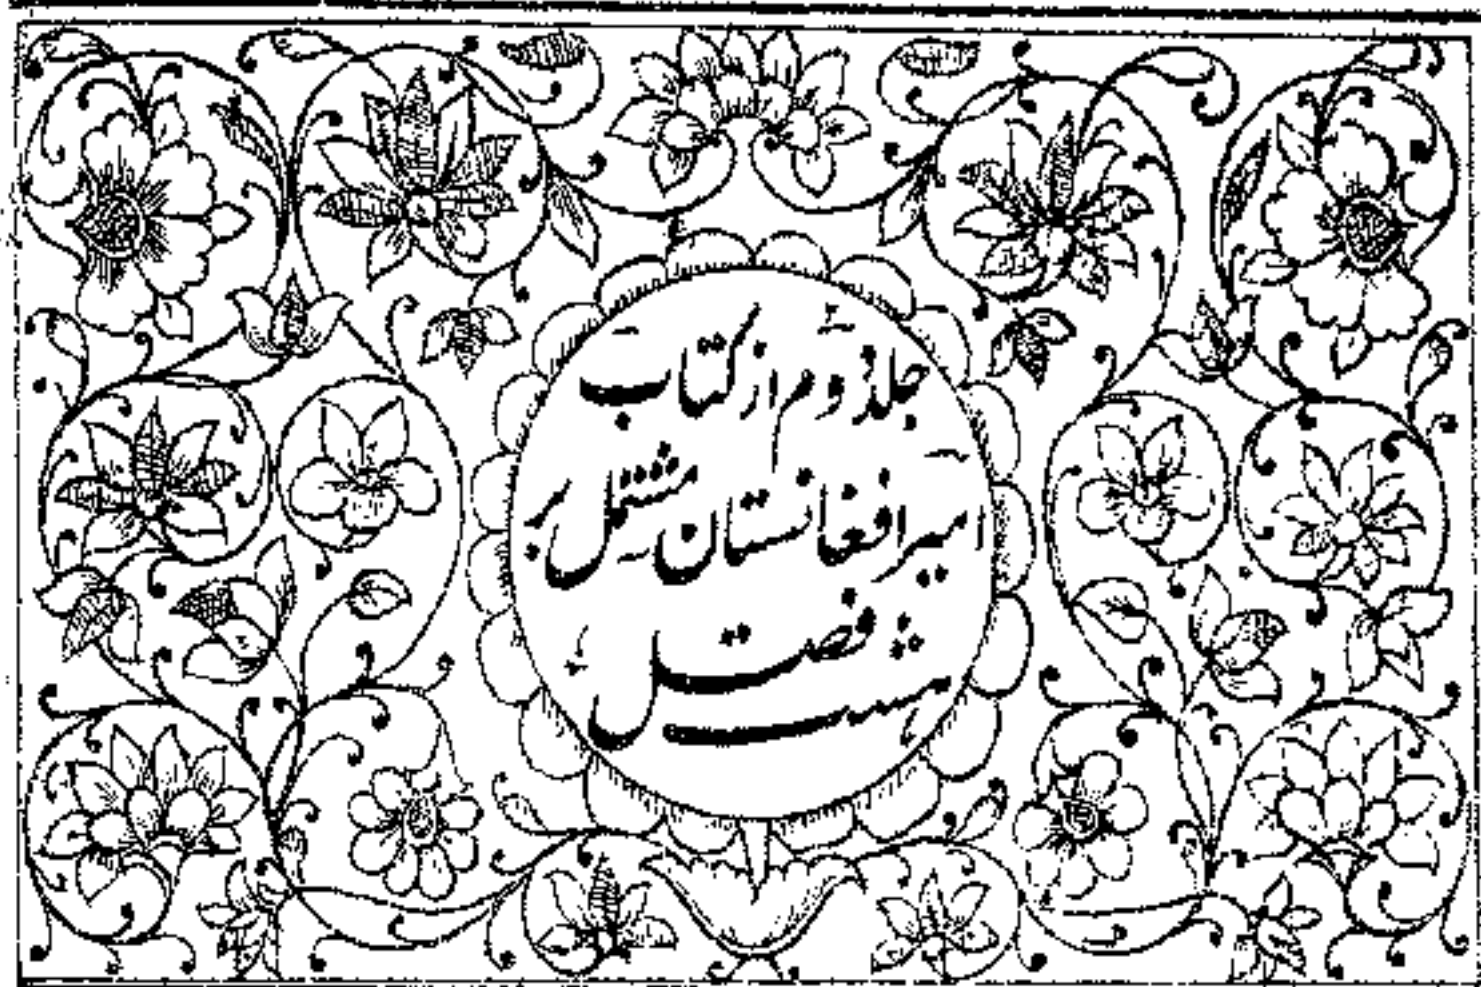 جلد دوم از کتاب
امیر افغانستان مشتمل بر
هشت فصل